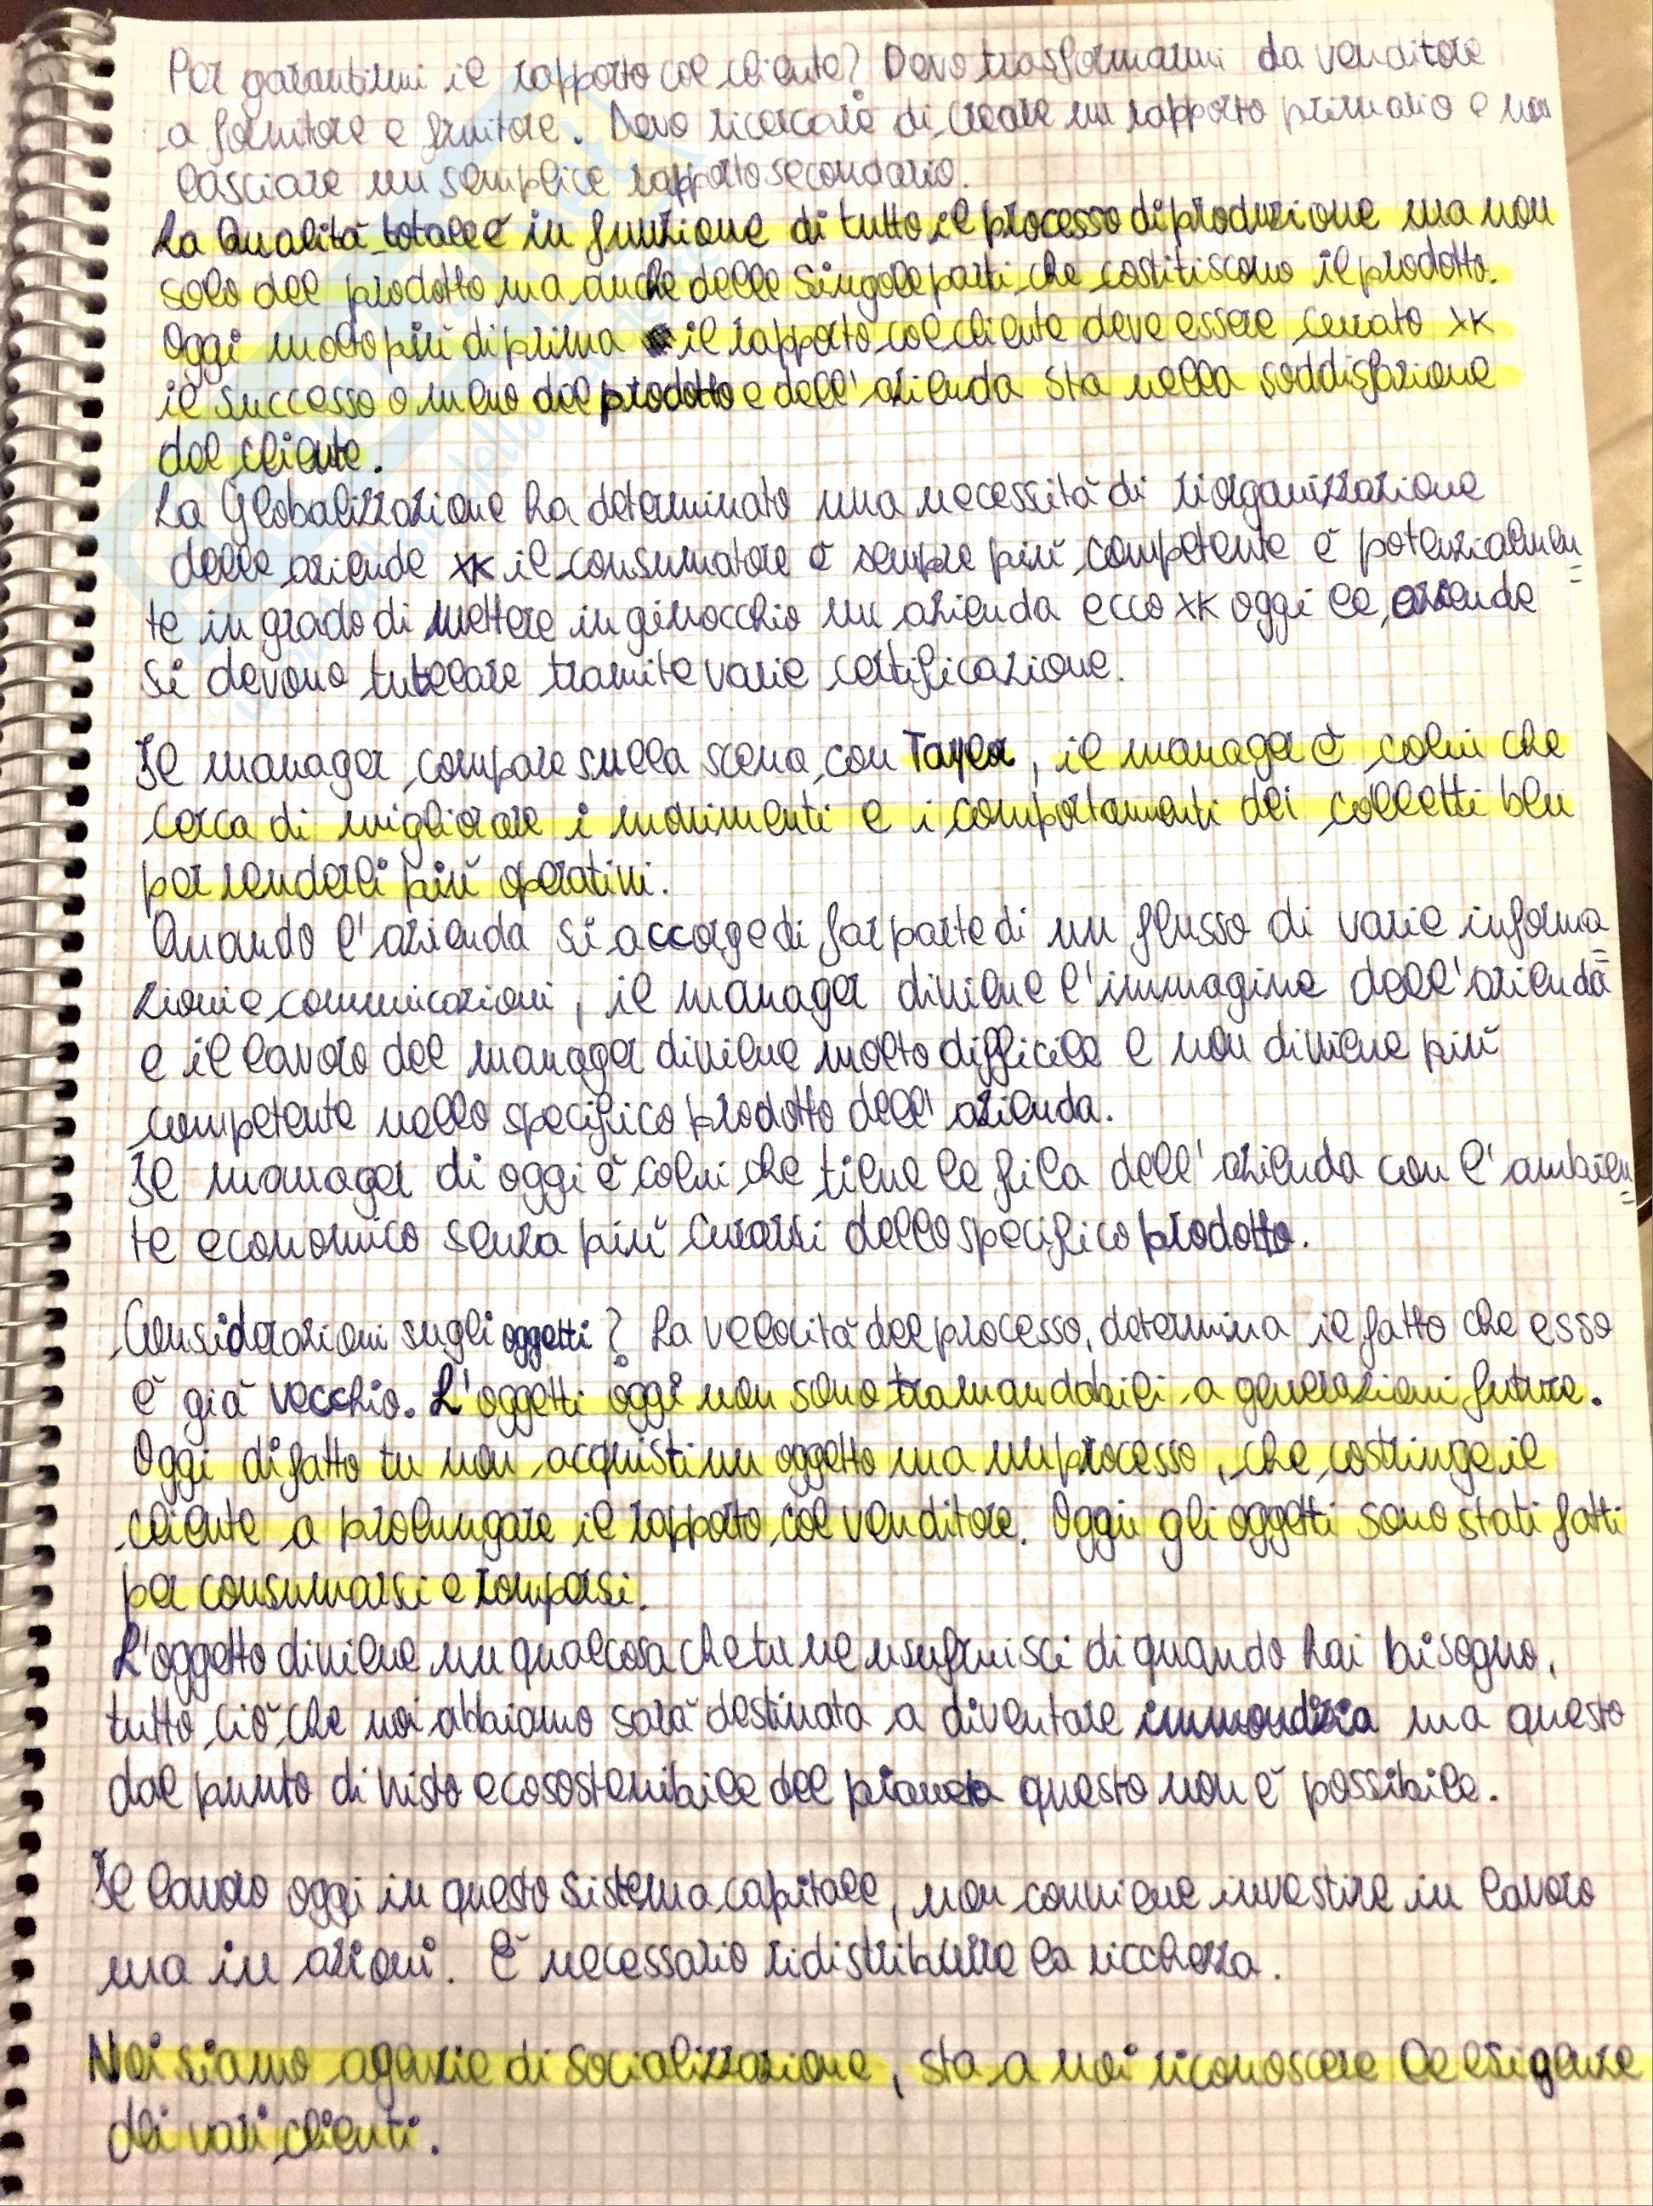 Per garantirmi il rapporto col cliente? Devo trasformarmi da venditore
a fornitore e fruitore. Devo ricercare di creare un rapporto primario e non
lasciare un semplice rapporto secondario.
La Qualità totale è in funzione di tutto il processo di produzione ma non
solo del prodotto ma anche delle singole parti che costitiscono il prodotto.
Oggi molto più di prima il rapporto col cliente deve essere curato xK
il successo o meno del prodotto e dell'azienda sta nella soddisfazione
del cliente.
La Globalizzazione ha determinato una necessità di riorganizzazione
delle aziende xK il consumatore è sempre più competente e potenzialmen
te in grado di mettere in ginocchio un azienda ecco xK oggi le aziende
si devono tutelare tramite varie certificazione.
Il manager compare sulla scena con Tayler, il manager è colui che
cerca di migliorare i movimenti e i comportamenti dei colletti blu
per renderli più operativi.
Quando l'azienda si accorge di far parte di un flusso di varie informa
zioni e comunicazioni, il manager diviene l'immagine dell'azienda
e il lavoro del manager diviene molto difficile e non diviene più
competente nello specifico prodotto dell'azienda.
Il manager di oggi è colui che tiene le fila dell'azienda con l'ambien
te economico senza più curarsi dello specifico prodotto.
Considerazioni sugli oggetti? La velocità del processo, determina il fatto che esso
è già vecchio. L'oggetti oggi non sono tramandabili a generazioni future.
Oggi di fatto tu non acquisti un oggetto ma un processo, che costringe il
cliente a prolungare il rapporto col venditore. Oggi gli oggetti sono stati fatti
per consumarsi e rompersi.
L'oggetto diviene un qualcosa che tu ne usufruisci di quando hai bisogno,
tutto ciò che noi abbiamo sarà destinata a diventare immondizia ma questo
dal punto di visto ecosostenibile del pianeta questo non è possibile.
Il lavoro oggi in questo sistema capitale, non conviene investire in lavoro
ma in azioni. È necessario ridistribuire la ricchezza.
Noi siamo agenzie di socializzazione, sta a noi riconoscere le esigenze
dei vari clienti.